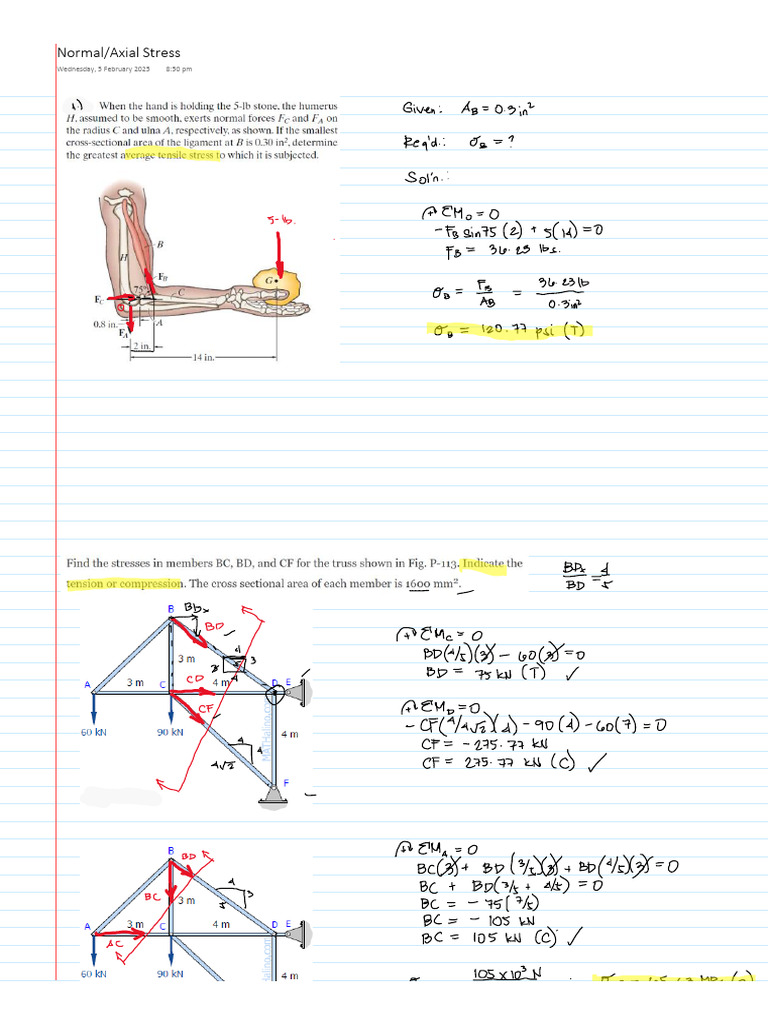 Normal/Axial Stress
Wednesday, 5 February 2025 8:50 pm
1.) When the hand is holding the 5-lb stone, the humerus
H, assumed to be smooth, exerts normal forces FC and FA on
the radius C and ulna A, respectively, as shown. If the smallest
cross-sectional area of the ligament at B is 0.30 in², determine
the greatest average tensile stress to which it is subjected.
5-lb.
B
H
FB
G
75°
C
FC
O
0.8 in.
A
FA
2 in.
14 in.
Given: AB = 0.3 in²
Req'd.: σB = ?
Sol'n.:
ΣMO = 0
-FB sin75 (2) + 5(14) = 0
FB = 36.23 lbs.
σB = FB/AB = 36.23 lb/0.3 in²
σB = 120.77 psi (T)
Find the stresses in members BC, BD, and CF for the truss shown in Fig. P-113. Indicate the
tension or compression. The cross sectional area of each member is 1600 mm².
BDx/BD = 4/5
B BDx
BD
3 m
4
3
3
5
4
A 3 m C CD 4 m D E
CF
60 kN 90 kN
4 m
4
4
4√2
F
MATHalino.com
ΣMC = 0
BD(4/5)(3) - 60(3) = 0
BD = 75 kN (T) ✓
ΣMD = 0
-CF(4/4√2)(4) - 90(4) - 60(7) = 0
CF = -275.77 kN
CF = 275.77 kN (C) ✓
B BD
BC
3 m
4
3
5
A 3 m C 4 m D E
AC
60 kN 90 kN
4 m
MATHalino.com
ΣMA = 0
BC(3) + BD(3/5)(3) + BD(4/5)(3) = 0
BC + BD(3/5 + 4/5) = 0
BC = -75(7/5)
BC = -105 kN
BC = 105 kN (C) ✓
105 x 10³ N